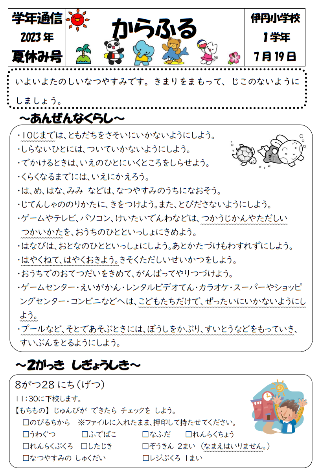 学年通信
2023年
夏休み号
からふる
伊丹小学校
1学年
7月19日
いよいよたのしいなつやすみです。きまりをまもって、じこのないように
しましょう。
~あんぜんなくらし~
・10じまでは、ともだちをさそいにいかないようにしよう。
・しらないひとには、ついていかないようにしよう。
・でかけるときは、いえのひとにいくところをしらせよう。
・くらくなるまでには、いえにかえろう。
・は、め、はな、みみ などは、なつやすみのうちになおそう。
・じてんしゃののりかたに、きをつけよう。また、とびださないようにしよう。
・ゲームやテレビ、パソコン、けいたいでんわなどは、つかうじかんやただしい
つかいかたを、おうちのひとといっしょにきめよう。
・はなびは、おとなのひとといっしょにしよう。あとかたづけもわすれずにしよう。
・はやくねて、はやくおきよう。きそくただしいせいかつをしよう。
・おうちでのおてつだいをきめて、がんばってやりつづけよう。
・ゲームセンター・えいがかん・レンタルビデオてん・カラオケ・スーパーやショッピ
ングセンター・コンビニなどへは、こどもたちだけで、ぜったいにいかないようにし
よう。
・プールなど、そとであそぶときには、ぼうしをかぶり、すいとうなどをもっていき、
すいぶんをとるようにしよう。
~2がっき しぎょうしき~
8がつ28にち(げつ)
11:30に下校します。
【もちもの】 じゅんびが できたら チェックを しよう。
□のびるから ※ファイルに入れたまま、押印して持たせてください。
□うわぐつ □ふでばこ □なふだ □れんらくちょう
□れんらくぶくろ □したじき □ぞうきん 2まい (なまえはいりません。)
□なつやすみの しゅくだい □レジぶくろ 1まい